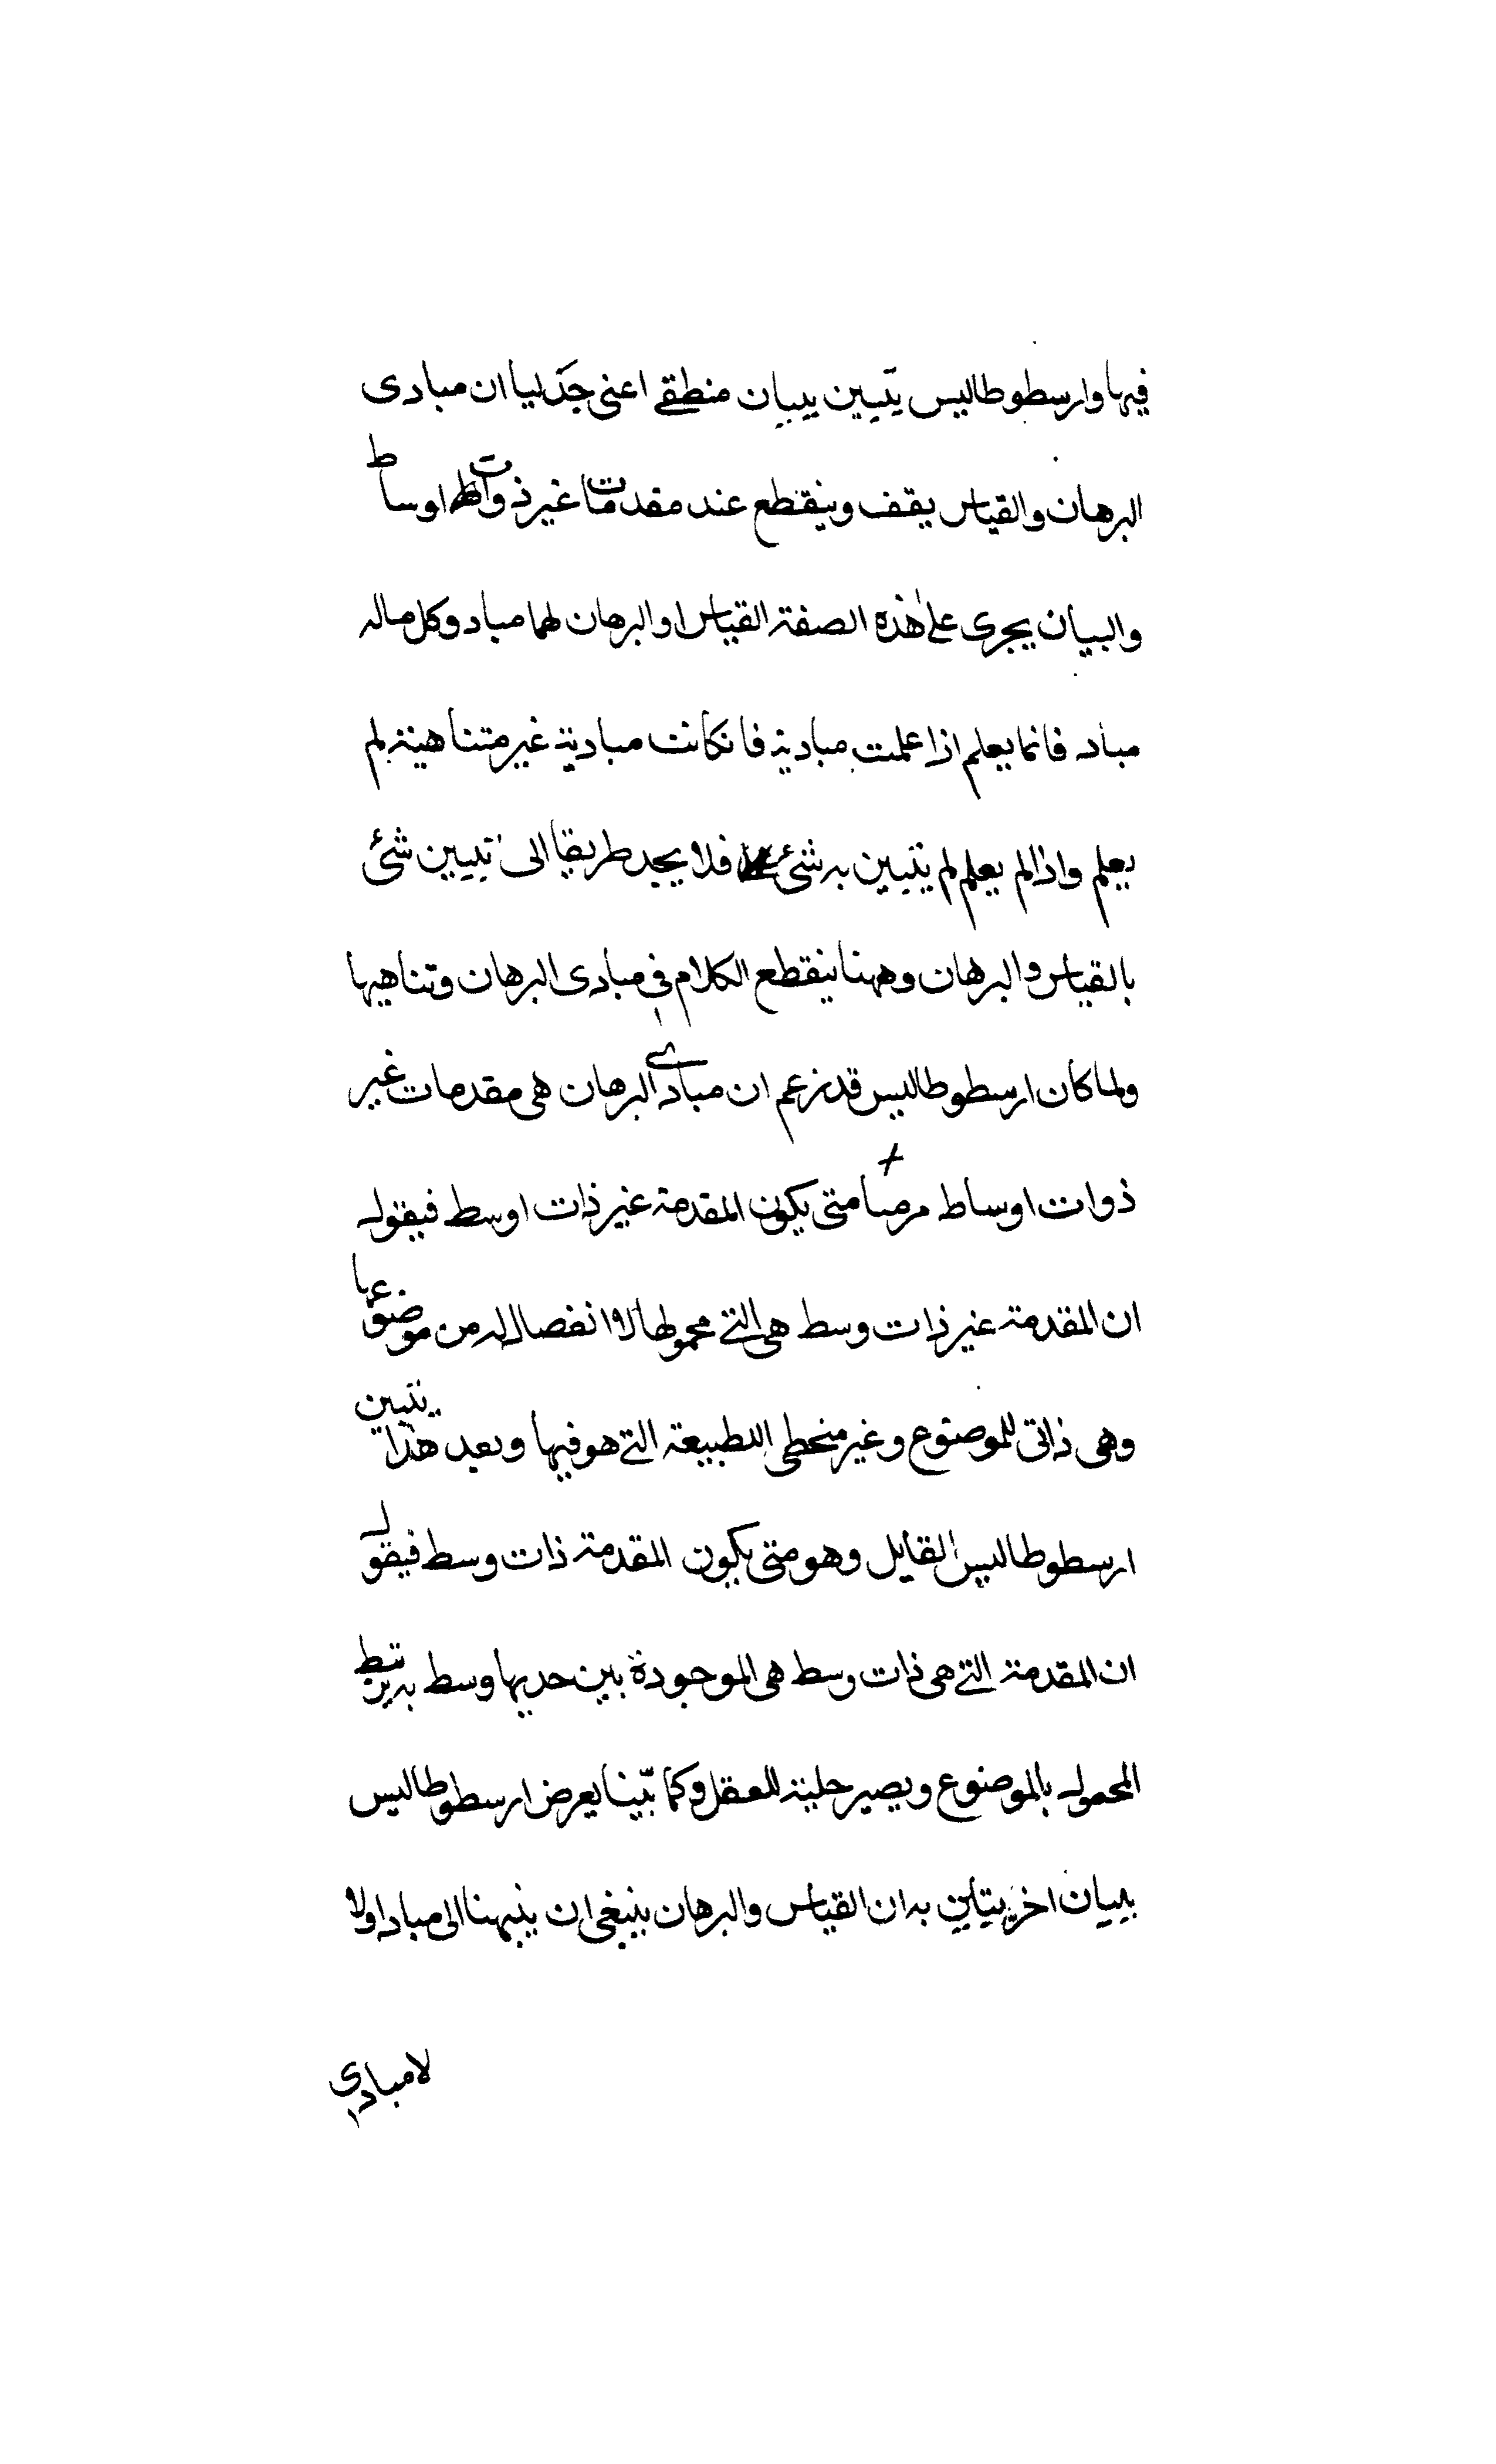 فيها وارسطوطاليس يتبين ببيان منطقے اعنى جدليا ان مبادى
البرهان والقياس يقف وينقطع عند مقدمات غير ذوات اوساط
والبيان يجرى على هذه الصفة القياس او البرهان لهما مباد وكل ماله
مباد فانما يعلم اذا علمت مباديه فانكانت مباديه غير متناهية لم
يعلم واذا لم يعلم لم يتبين به شئ فلا يجد طريقا الى تبيين شئ
بالقياس والبرهان وههنا ينقطع الكلام فى مبادى البرهان وتناهيها
ولما كان ارسطوطاليس قد زعم ان مبادے البرهان هى مقدمات غير
ذوات اوساط متى يكون المقدمة غير ذات اوسط فيقول
ان المقدمة غير ذات وسط هى التے محمولها لا انفصال له من موضوعها
وهى ذاتى للموضوع وغير منحطى الطبيعة التے هو فيها وبعد هذا يتبين
ارسطوطاليس القايل وهو متى يكون المقدمة ذات وسط فيقول
ان المقدمة التے هى ذات وسط هى الموجودة بين حديها وسط به يرتبط
المحمول بالموضوع ويصير حلية للعقل وكما بينا يعرض ارسطوطاليس
ببيان اخر يتأين به ان القياس والبرهان ينبغى ان ينبهنا الى مباد اولا
لا مبادى